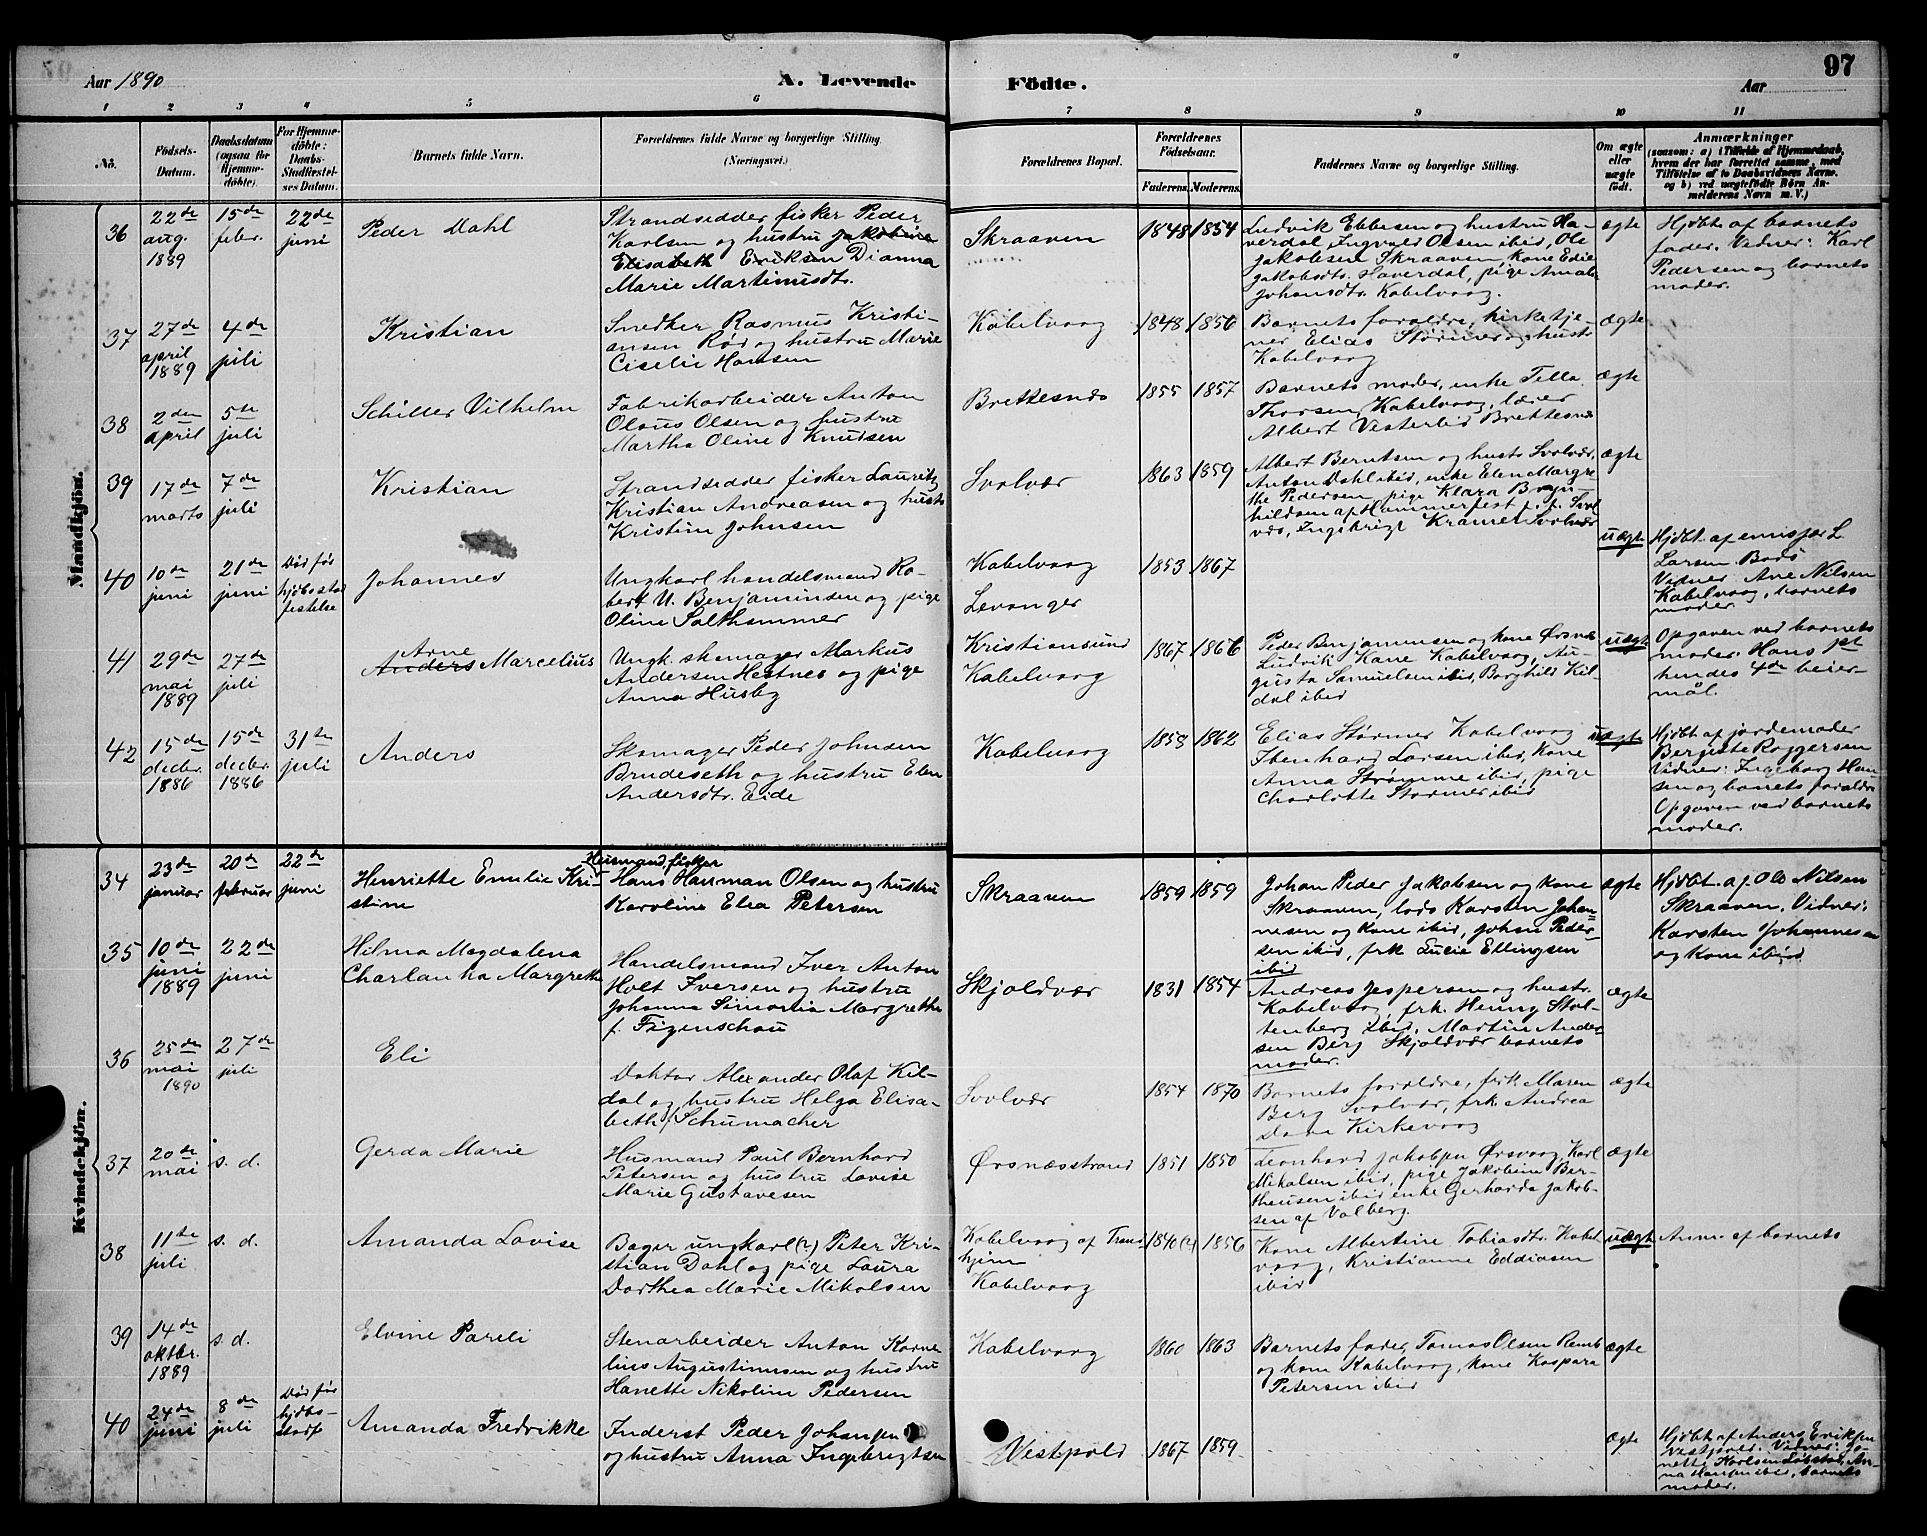 97
Aar 1890
A. Levende
Födte.
Aar
1 2 3 4 5 6 7 8 9 10 11
No.
Födsels-
Datum.
Daabsdatum
(ogsaa for
Hjemme-
döbte).
For Hjemme-
döbte:
Daabs-
Stadfæstel-
ses Datum.
Barnets fulde Navn.
Forældrenes fulde Navne og borgerlige Stilling.
(Næringsvei.)
Forældrenes Bopæl.
Forældrenes
Födselsaar.
Faderens. Moderens.
Faddernes Navne og borgerlige Stilling.
Om ægte
eller
uægte
födt.
Anmærkninger
(saasom: a) i Tilfælde af Hjemmedaab,
hvem der har forrettet samme, med
Tilföielse af to Daabsvidners Navne.
og b) ved uægtefödte Börn An-
melderens Navn m. V.)
Mandkjön.
36
22de
aug.
1889
15de
febr.
22de
juni
Peder Dahl
Strandsidder fisker Peder
Karlsen og hustru Jakobine
Elisabeth Eriksen Dianna
Marie Martinusdtr.
Skraaven
1848 1854
Ludvik Ebbesen og hustru Ha-
verdal, Ingvald Olsen ibid, Ole
Jakobsen Skraaven, Kone Edie
Jakobsdtr. Haverdal, pige Amalie
Johansdtr. Kabelvaag.
ægte
Hjdbt af barnets
fader. Vidner: Karl
Pedersen og barnets
moder.
37
27de
april
1889
4de
juli
Kristian
Snedker Rasmus Kristi-
ansen Rød og hustru Marie
Ciselie Hansen
Kabelvaag
1848 1856
Barnets forældre, kirketje-
ner Elias Størmer og hustr.
Kabelvaag
ægte
38
2den
april
5te
juli
Schiller Vilhelm
Fabrikarbeider Anton
Olaus Olsen og hustru
Martha Oline Knudsen
Brettesnæs
1855 1857
Barnets moder, enke Tella
Thorsen Kabelvaag, lærer
Albert Vesterlid Brettesnæs
ægte
39
17de
marts
7de
juli
Kristian
Strandsidder fisker Lauritz
Kristian Andreasen og hustr.
Kristine Johnsen
Svolvær
1863 1859
Albert Berntsen og hustr. Svolvær,
Anton Dahl ibid, enke Elen Margre-
the Pedersen, pige Klara Bryn-
hildsen af Hammerfest p.t. Svol
vær, Ingebrigt Kramer Svolvær
ægte
40
10de
juni
21de
juni
Død før
hjdbsstad
festelse
Johannes
Ungkarl handelsmand Ro-
bert U. Benjaminsen og pige
Oline Salthammer
Kabelvaag
Levanger
1853 1867
uægte
Hjdbt. af emissær L
Larsen Bodø
Vidner Ane Nilsen
Kabelvaag, barnets
moder.
41
29de
mai
1889
27de
juli
Arne
Anders Marcelius
Ungk. skomager Markus
Andersen Hestnes og pige
Anna Husby
Kristiansund
Kabelvaag
1867 1866
Peder Benjaminsen og kone Ørsnæs
Ludvik Kane Kabelvaag, Au-
gusta Samuelsen ibid, Borghild Kil-
dal ibid
uægte
Opgaven ved barnets
moder. Hans 1st
hendes 4de beier-
mål.
42
15de
decbr.
1886
15de
decbr.
1886
31te
juli
Anders
Skomager Peder Johnsen
Brudeseth og hustru Elen
Andersdtr. Eide
Kabelvaag
1858 1862
Elias Størmer Kabelvaag
Ibenhard Larsen ibid, Kone
Anna Strømme ibid, pige
Charlotte Størmer ibid
uægte
Hjdbt af jordemoder
Bergitte Roggersen
Vidner: Ingeborg Han
sen og barnets forældre
Opgaven ved barnets
moder.
Kvindekjön.
34
23de
januar
20de
februar
22de
juni
Henriette Emilie Kri-
stine
Husmand, fisker
Hans Hauman Olsen og hustru
Karoline Elea Petersen
Skraaven
1859 1859
Johan Peder Jakobsen og kone
Skraaven, lods Karsten Johan-
nesen og kone ibid, Johan Peder-
sen ibid, frk Lucie Ellingsen
ibid
ægte
Hjdbt. af Ole Nilsen
Skraaven. Vidner:
Karsten Johannesen
og Kone ibid
35
10de
juni
1889
22de
juni
Hilma Magdalena
Charlantha Margrethe
Handelsmand Iver Anton
Holt Iversen og hustru
Johanna Margrethe
f. Figenschou
Skjoldvær
1831 1854
Andreas Jespersen og hustr.
Kabelvaag, frk. Henny Stol-
tenberg ibid, Martin Ander-
sen Berg Skjoldvær barnets
moder.
ægte
36
25de
mai
1890
27de
juli
Eli
Doktor Alexander Olaf Kil-
dal og hustru Helga Elisa-
beth f. Schumacher
Svolvær
1854 1870
Barnets forældre, frk. Maren
Berg Svolvær, frk. Andrea
Kirkevaag
ægte
37
20de
mai
s. d.
Gerda Marie
Husmand Paul Bernhard
Petersen og hustru Lovise
Marie Gustavesen
Ørsnæsstrand
1851 1850
Leonhard Jakobsen Ørsvaag, Karl
Mikalsen ibid, pige Jakobine Ber-
theusen ibid enke Gerharda Jakob-
sen af Valberg.
ægte
38
11te
juli
s. d.
Amanda Lovise
Bager ungkarl (?) Peter Kri-
stian Dahl og pige Laura
Dorthea Marie Mikalsen
Kabelvaag af Trond
hjem
Kabelvaag
1840(?) 1856
Kone Albertine Tobiasdtr. Kabel
vaag, Kristianne Eddiasen
ibid
uægt
Anm. af barnets
39
14de
oktbr.
1889
s. d.
Elvine Pareli
Stenarbeider Anton Korne
lius Augustinusen og hustru
Hanette Nikoline Pedersen
Kabelvaag
1860 1863
Barnets fader, Tomas Olsen Remb
og kone Kabelvaag, kone Kaspara
Petersen ibid
ægte
40
24de
juni
8de
juli
Død før
hjdbs-
stadf
Amanda Fredrikke
Inderst Peder Johansen
og hustru Anna Ingebrigtsen
Vestpold
1867 1859
ægte
Hjdbt af Anders Eriksen
Vestpold. Vidner: Jo-
nette Karlsen, An-
na Hansen ibid, barnets
moder.